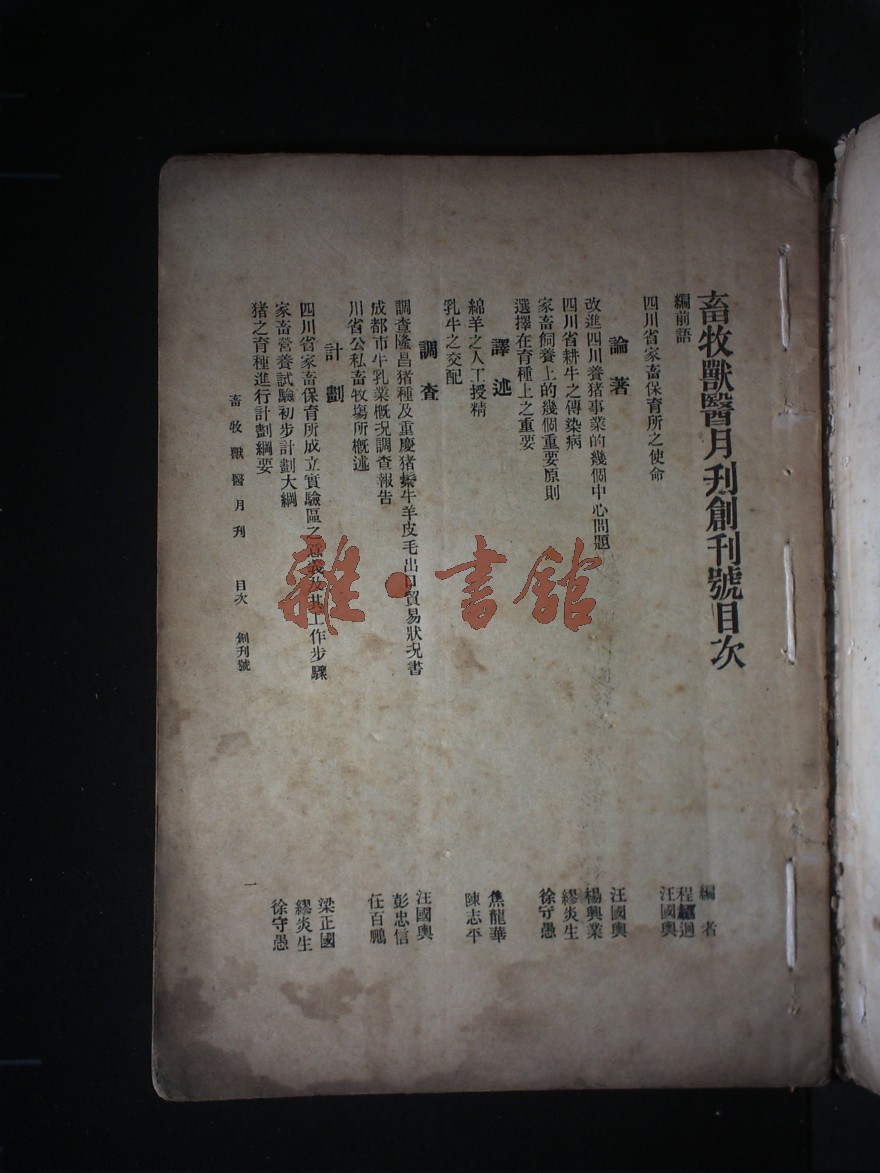 畜牧獸醫月刋創刊號目次
編前語
編者
四川省家畜保育所之使命
程紹迥
汪國輿
論著
改進四川養猪事業的幾個中心問題
汪國輿
四川省耕牛之傳染病
楊興業
家畜飼養上的幾個重要原則
繆炎生
選擇在育種上之重要
徐守愚
譯述
綿羊之人工授精
焦龍華
乳牛之交配
陳志平
調查
調查隆昌猪種及重慶猪鬃牛羊皮毛出口貿易狀況書
汪國輿
成都市牛乳業槪況調查報告
彭忠信
川省公私畜牧塲所槪述
任百鵬
計劃
四川省家畜保育所成立實驗區之意義及其工作步驟
梁正國
家畜營養試驗初步計劃大綱
繆炎生
猪之育種進行計劃綱要
徐守愚
畜牧獸醫月刋 目次 創刊號
一
雜·書館